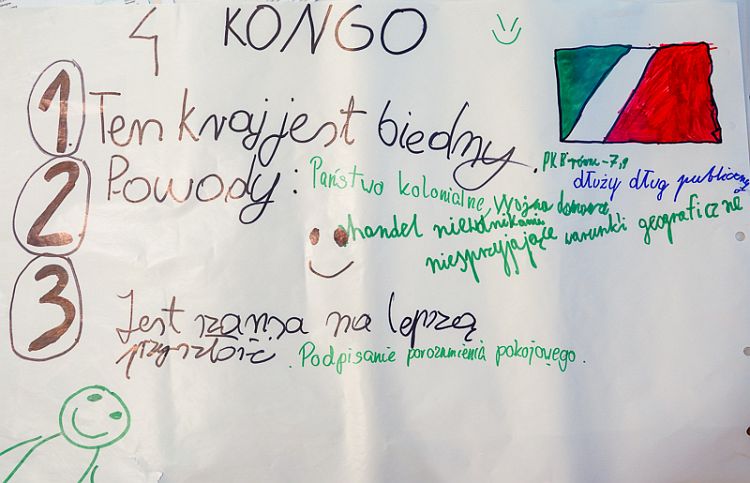 4 KONGO
1. Ten kraj jest biedny. PKB równe - 7,9
2 Powody: Państwo kolonialne, Wojna domowa, dłuży dług publiczny
handel niewolnikami
niesprzyjające warunki geograficzne
3 Jest szansa na lepszą
przyszłość. Podpisanie porozumienia pokojowego.